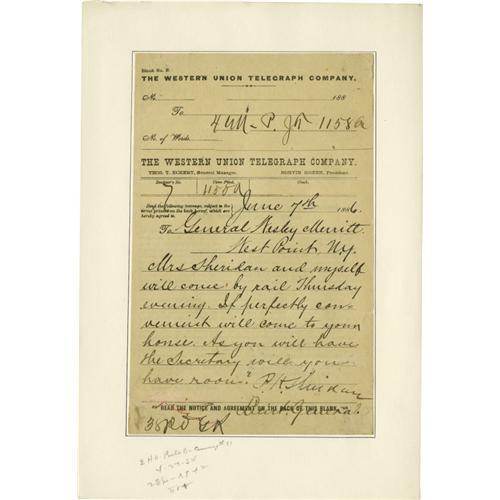 Blank No. 2.
THE WESTERN UNION TELEGRAPH COMPANY.
No. 188
To
4 P. Jn 1158a
No. of Words
THE WESTERN UNION TELEGRAPH COMPANY.
THOS. T. ECKERT, General Manager. NORVIN GREEN, President.
Time Filed. Check.
1150a
Send the following message, subject to the
terms printed on the back hereof, which are
hereby agreed to.
June 7th 1886.
To General Wesley Merritt
West Point, N.Y.
Mrs Sheridan and myself
will come by rail Thursday
evening. If perfectly con-
venient will come to your
house. As you will have
the Secretary will you
have room? P. H. Sheridan
Lieut. General.
READ THE NOTICE AND AGREEMENT ON THE BACK OF THIS BLANK.
38